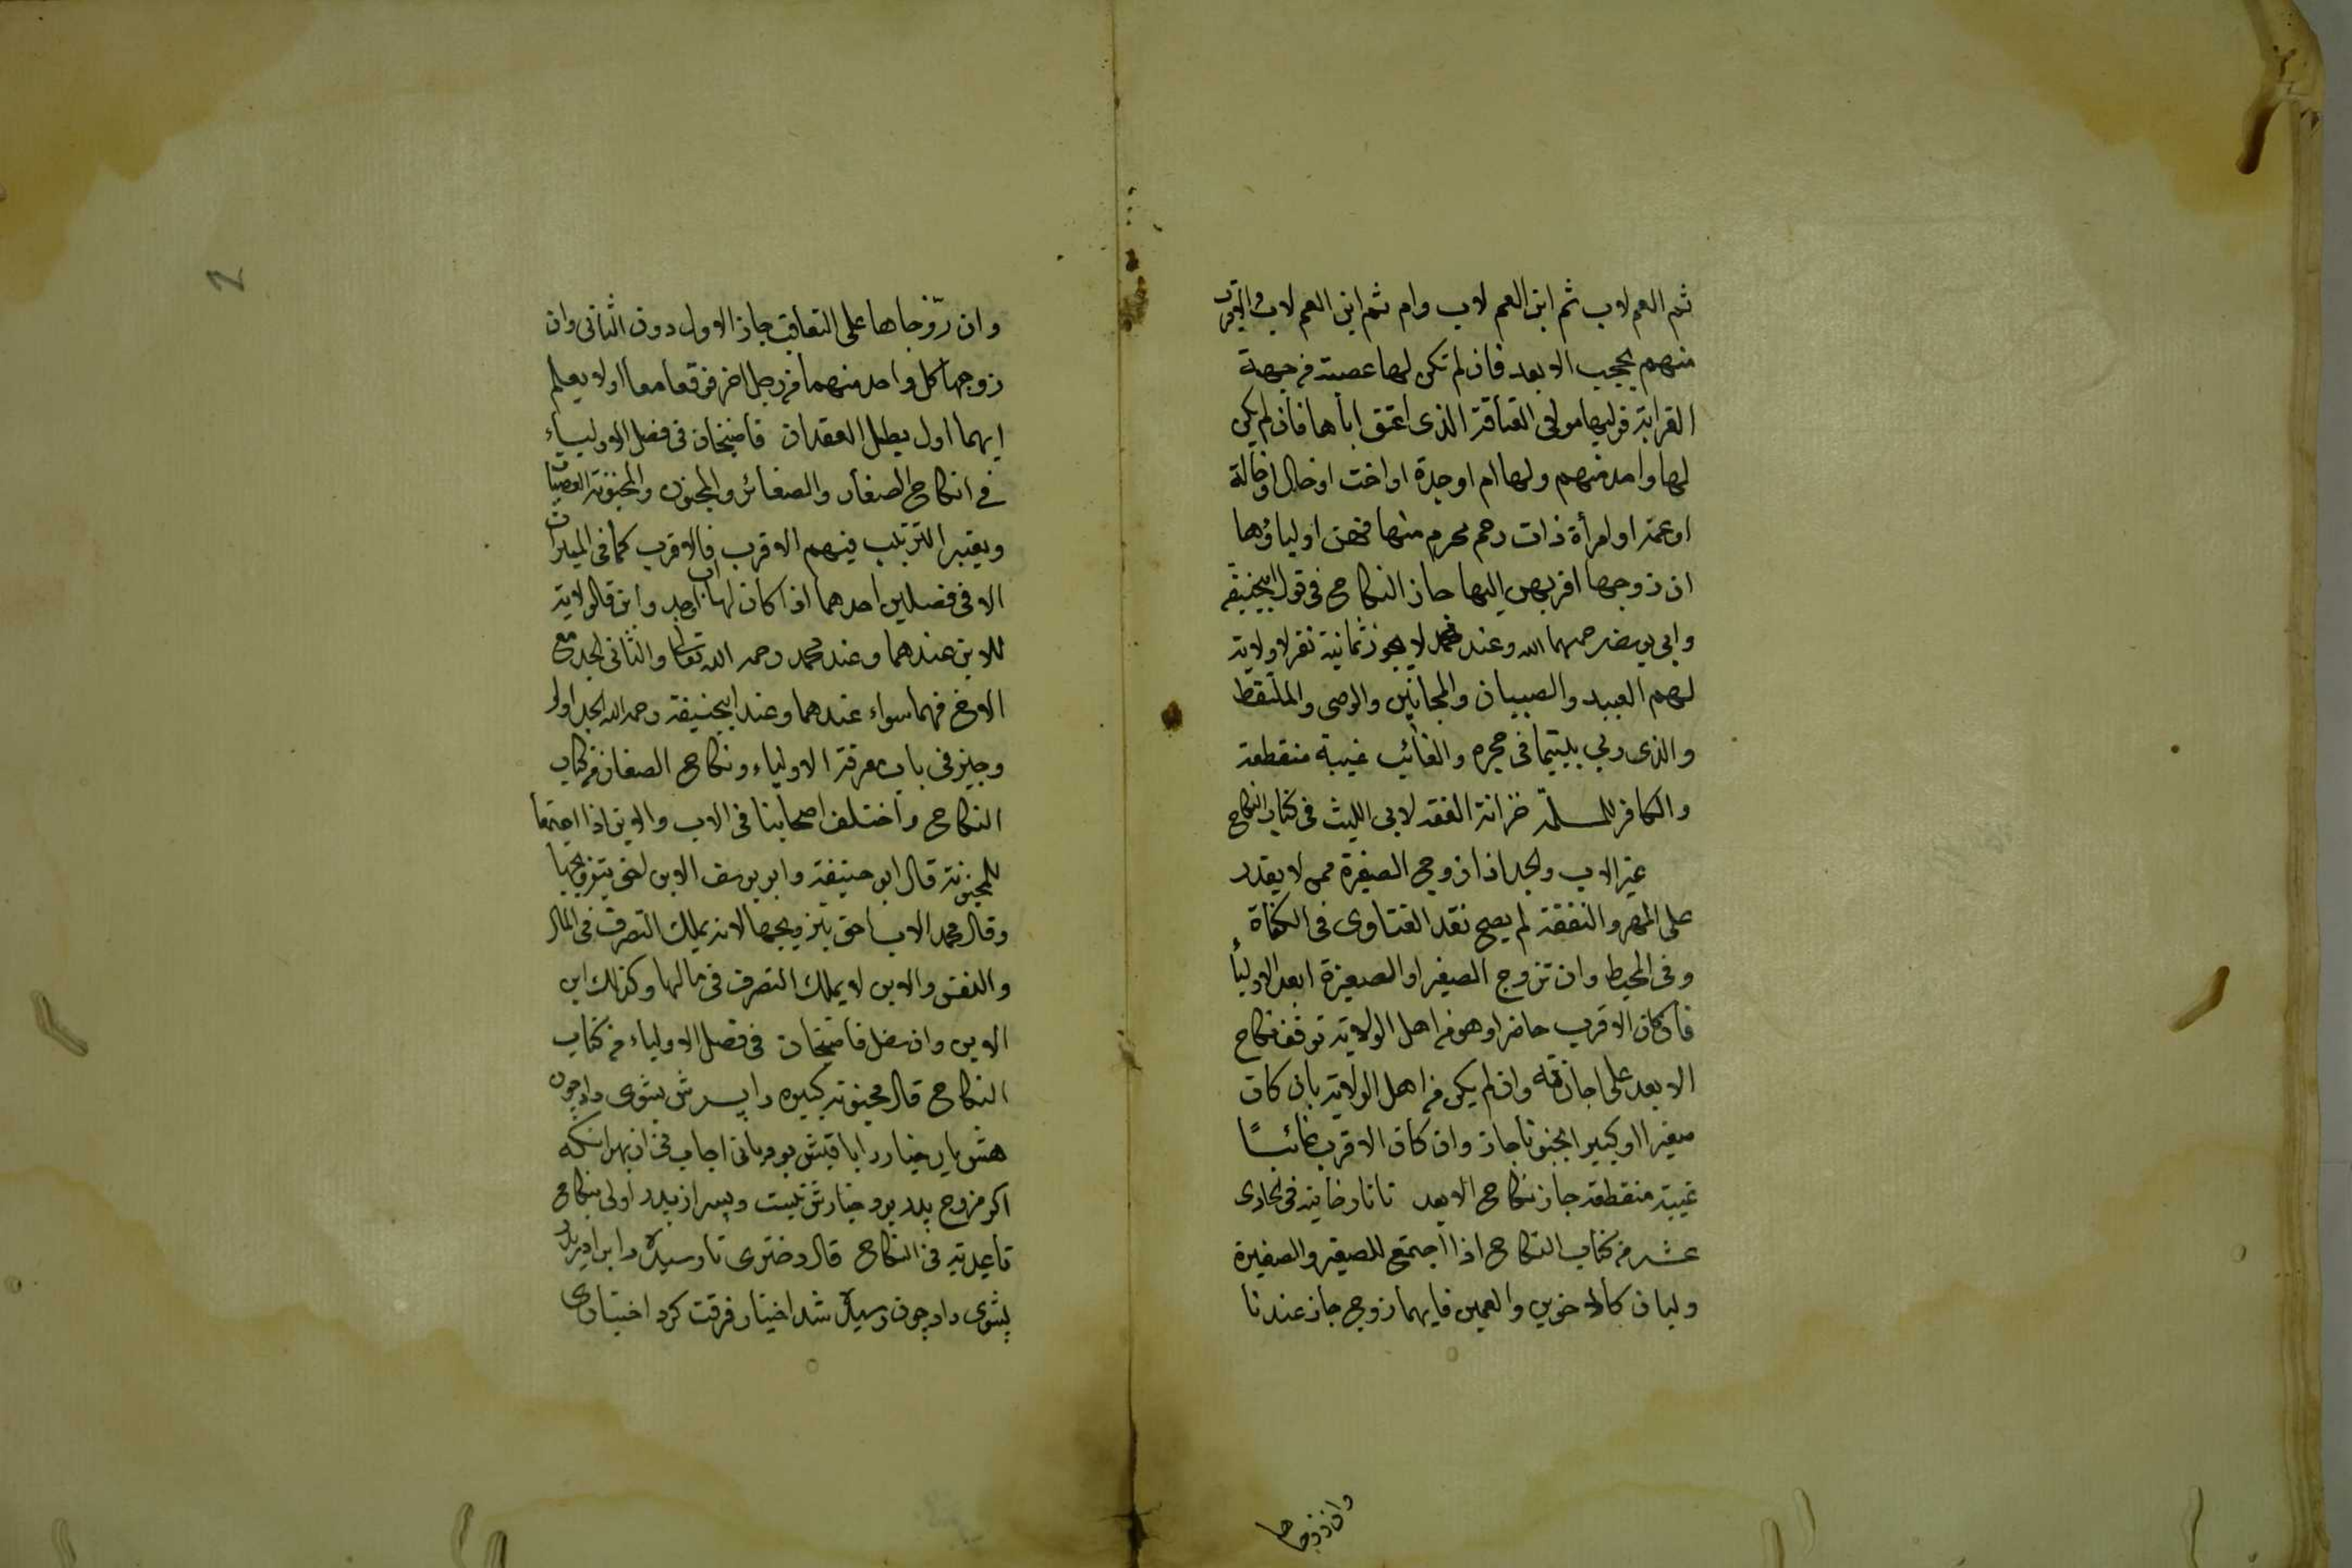 ثم العم لاب ثم ابن العم لاب وام ثم ابن العم لاب والاقرب
منهم يحجب الابعد فان لم تكن لها عصبة من جهة
القرابة فوليها مولى العتاقة الذى اعتق اباها فان لم يكن
لها واحد منهم ولها ام او جدة او اخت او خال او خالة
او عمة او امرأة ذات رحم محرم منها فهن اولياؤها
ان زوجها اقربهن اليها جاز النكاح فى قول ابيحنيفة
وابى يوسف رحمهما الله وعند محمد لا يجوز ثمانية نفر لا ولاية
لهم العبيد والصبيان والمجانين والوصى والملتقط
والذى ربى يتيما فى حجره والغائب غيبة منقطعة
والكافر للمسلمة خزانة الفقه لابى الليث فى كتاب النكاح
غير الاب والجد اذا زوج الصغيرة ممن لا يقدر
على المهر والنفقة لم يصح نقد الفتاوى فى الكفاة
وفى المحيط وان تزوج الصغير او الصغيرة ابعد الاولياء
فان كان الاقرب حاضرا وهو من اهل الولاية توقف نكاح
الابعد على اجازته وان لم يكن من اهل الولاية بان كان
صغيرا او كبيرا مجنونا جاز وان كان الاقرب غائبًا
غيبة منقطعة جاز نكاح الابعد تاتارخانية فى الحادى
عشر من كتاب النكاح اذا اجتمع للصغير والصغيرة
وليان كالاخوين والعمين فايهما زوج جاز عندنا
وان زوجاها
وان زوّجاها على التعاقب جاز الاول دون الثانى وان
زوجها كل واحد منهما من رجل اخر فوقعا معا او لا يعلم
ايهما اول بطل العقدان قاضيخان فى فصل الاولياء
فى انكاح الصغار والصغائر والمجنون والمجنونة العصبات
ويعتبر الترتيب فيهم الاقرب فالاقرب كما فى الميراث
الا فى فصلين احدهما اذا كان لها اب او جد وابن فالولاية
للابن عندهما وعند محمد رحمه الله تعالى والثانى الجد مع
الاخ فهما سواء عندهما وعند ابيحنيفة رحمه الله الجد اولى
وجيز فى باب معرفة الاولياء ونكاح الصغار من كتاب
النكاح واختلف اصحابنا فى الاب والابن اذا اجتمعا
للمجنونة قال ابو حنيفة وابو يوسف الابن احق بتزويجها
وقال محمد الاب احق بتزويجها لانه يملك التصرف فى المال
والنفس والابن لا يملك التصرف فى مالها وكذلك ابن
الابن وان سفل قاضيخان فى فصل الاولياء من كتاب
النكاح قال مجنونه كبيره را پسرش بشوى داد چون
هشيار خيار
اكر مزوج پدر بود خيارش نيست وپسر از پدر اولى بنكاح
قاعديه فى النكاح قال دخترى نارسيده را برادر
بشوى داد چون رسيده شد اختيار فرقت كرد اختيار